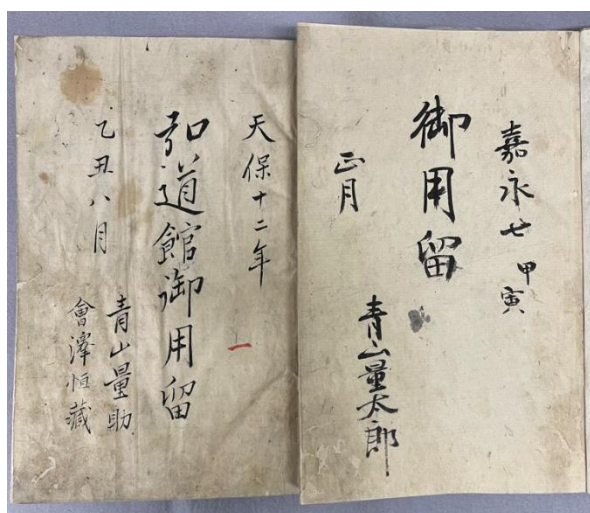 嘉永七 甲寅
御用留
正月
青山量太郎
天保十二年
弘道館御用留
一
乙丑八月
青山量助
會澤恒藏